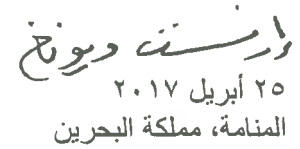 إرنست ويونغ
٢٥ أبريل ٢٠١٧
المنامة، مملكة البحرين